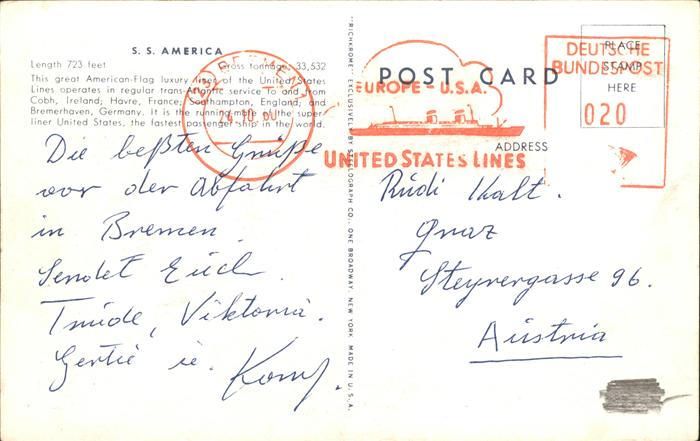 S. S. AMERICA
Length 723 feet Gross tonnage: 33,532
This great American-Flag luxury liner of the United States
Lines operates in regular trans-Atlantic service to and from
Cobh, Ireland; Havre, France; Southampton, England; and
Bremerhaven, Germany. It is the running mate of the super
liner United States, the fastest passenger ship in the world.
Die beßten Grüße
vor der Abfahrt
in Bremen.
Sendet Euch
Trude, Viktoria.
Gertie u.
"RICHKROME EXCLUSIVELY BY STEELOGRAPH CO., ONE BROADWAY, NEW YORK, MADE IN U.S.A.
EUROPE - U.S.A.
UNITED STATES LINES
POST CARD
DEUTSCHE
BUNDESPOST
020
PLACE
STAMP
HERE
ADDRESS
Rudi Kalt.
Graz
Steyrergasse 96.
Austria